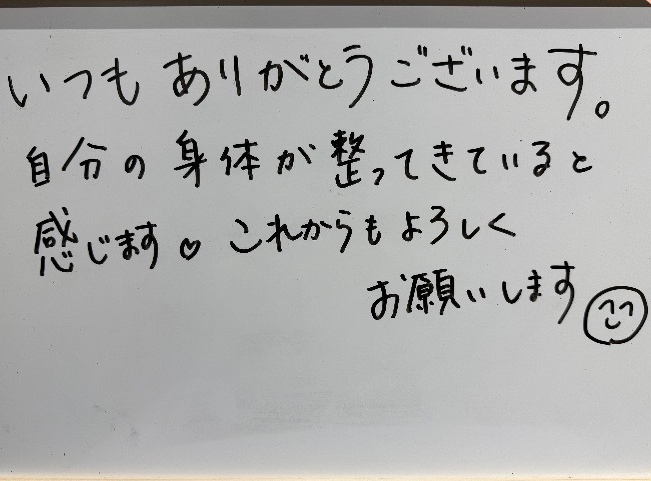 いつもありがとうございます。
自分の身体が整ってきていると
感じます♡ これからもよろしく
お願いします